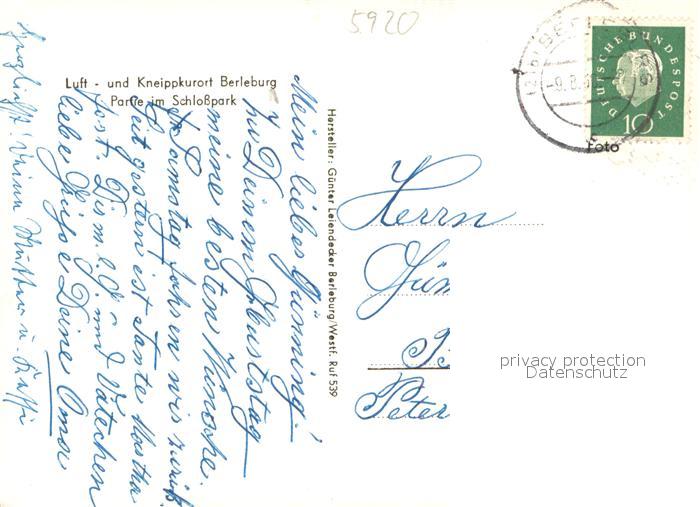 5920
Luft - und Kneippkurort Berleburg
Partie im Schloßpark
Mein lieber Günning!
Zu Deinem Gbuststag
meine besten Wünsche.
Samstag fahren wir zurück
Seit gestern ist Tante Martha
fort. Dir m. lg. und Vätechen
liebe Grüße Deine Oma
Herzlichst! Deine Mutter u.
Hersteller: Günter Leiendecker Berleburg/Westf. Ruf 539
Herrn
Gün
Peter
DEUTSCHE BUNDESPOST
10
-9.8.
Foto
privacy protection
Datenschutz